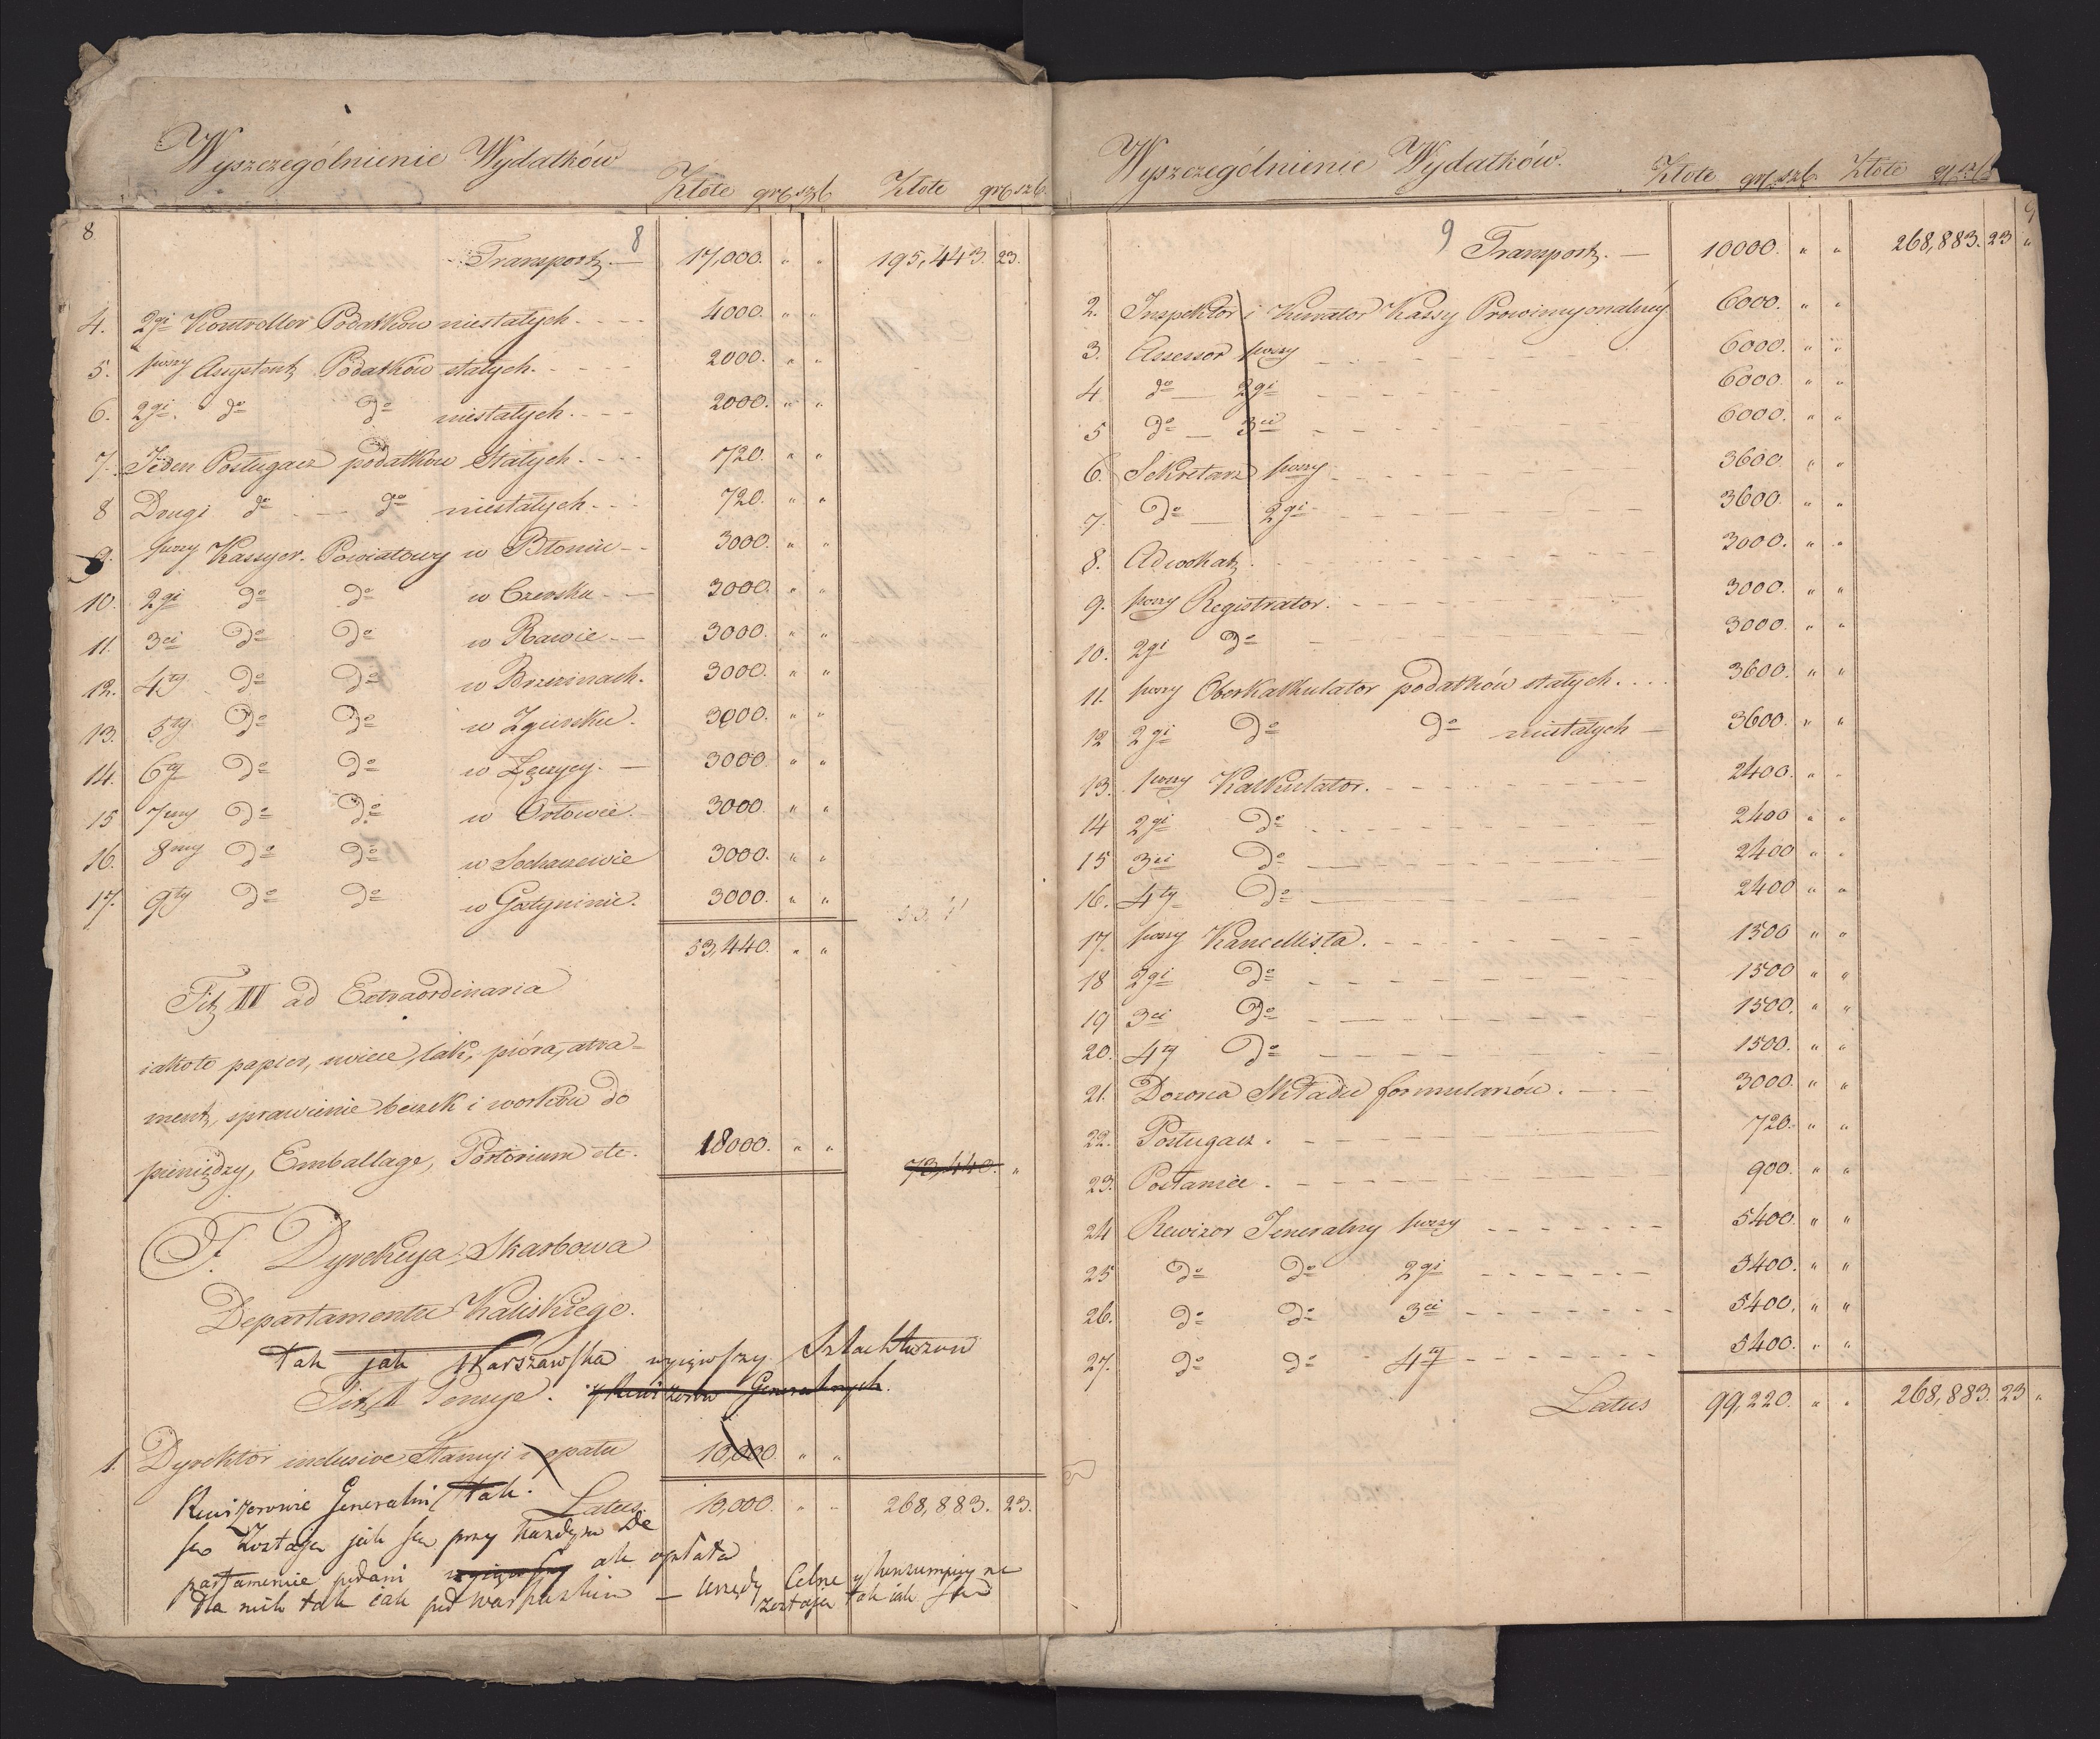 Wyszczególnienie Wydatków
Złote gr. szl. Złote gr. szl.
8
8
Transport. — 17,000. " " 195,443. 23.
4. 2gi Kontroller Podatków niestałych. 4000. " "
5. pwszy Asystent Podatków stałych. 2000. " "
6. 2gi. do do niestałych. 2000. " "
7. Jeden Posługacz podatków Stałych. 720. " "
8 Drugi do do niestałych. 720. " "
9. pwszy Kassyer. Powiatowy w Błoniu 3000. " "
10. 2gi do do w Czersku 3000. " "
11. 3ci do do w Rawie 3000. " "
12. 4ty do do w Brzezinach. 3000. " "
13. 5ty do do w Zgiersku. 3000. " "
14. 6ty do do w Łęczycy. 3000. " "
15 7my do do w Orłowie. 3000. " "
16. 8my do do w Sochaczewie 3000. " "
17. 9ty do do w Gostyninie. 3000. " "
53,440. " "
Tit III ad Extraordinaria
iakoto papier, świece, lak, pióra, atra=
ment, sprawienie beczek i worków do
pieniędzy, Emballage, Portorium etc. 18000. " " 73,440. "
F. Dyrekcya Skarbowa
Departamentu Kaliskiego.
Tak jak Warszawska wyiąwszy
Tit. I Pensye. Rewizorów Generalnych.
1. Dyrektor inclusive Stancyi i opału 10,000. " "
Latus. 10,000. " " 268,883. 23.
Rewizorowie Generalni tak
zostaią jak są przy każdym De
partamencie podani wyiąwszy ale opłata
dla nich tak iak pod Warszawskim — Urzędy Celne y konsumpcyine
zostaią tak iak są
Wyszczególnienie Wydatków.
Złote gr. szl. Złote gr. szl.
9
9
Transport. — 10000. " " 268,883. 23 "
2. Inspektor i Kurator Kassy Prowincyonalney 6000. " "
3. Assessor pwszy 6000. " "
4 do 2gi 6000. " "
5 do 3ci 6000. " "
6. Sekretarz pwszy 3600. " "
7. do 2gi 3600. " "
8. Adwokat. 3000. " "
9. pwszy Registrator. 3000. " "
10. 2gi do 3000. " "
11. pwszy Oberkalkulator podatków stałych. 3600. " "
12 2gi do do niestałych 3600. " "
13. pwszy Kalkulator. 2400. " "
14 2gi do 2400 " "
15 3ci do 2400 " "
16. 4ty do 2400 " "
17. pwszy Kancellista. 1500 " "
18 2gi do 1500 " "
19 3ci do 1500. " "
20. 4ty do 1500. " "
21. Dozorca Składu formularzów. 3000. " "
22. Posługacz. 720. " "
23. Posłaniec. 900. " "
24 Rewizor Jeneralny pwszy 5400. " "
25 do do 2gi 5400. " "
26. do do 3ci 5400. " "
27. do do 4ty 5400. " "
Latus 99,220. " " 268,883. 23 "